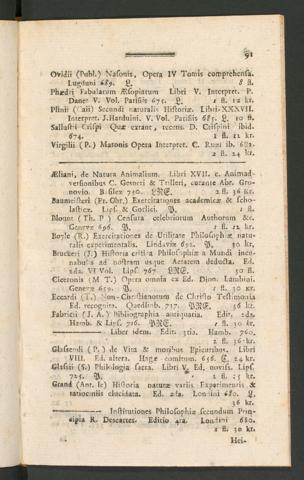 91
Ovidii (Publ.) Nasonis, Opera IV Tomis comprehensa.
Lugduni 689. L. 8 fl.
Phædri Fabularum Æsopiatum Libri V. Interpret. P.
Danet V. Vol. Parisiis 675. L. 1 fl. 12 kr.
Plinii (Caii) Secundi naturalis Historiæ. Libri XXXVII.
Interpret. J. Harduini. V. Vol. Parisiis 685. L. 10 fl.
Sallustii Crispi Quæ extant, recens. D. Crispini ibid.
674. 1 fl. 12 kr.
Virgilii (P.) Maronis Opera Interpret. C. Ruæi ib. 682.
2 fl. 24 kr.
Æliani, de Natura Animalium. Libri XVII. c. Animad-
versionibus C. Gesneri & Trilleri, curante Abr. Gro-
novio. Basileæ 750. 2 fl. 36 kr.
Baumeisteri (Fr. Chr.) Exercitationes academicæ & scho-
lasticæ. Lips. & Gorlici. P. 1 fl.
Blount (Th. P.) Censura celebriorum Authorum &c.
Genevæ 696. P. 1 fl. 12 kr.
Boyle (R.) Exercitationes de Utilitate Philosophiæ natu-
ralis experimentalis. Lindaviæ 692. 30 kr.
Bruckeri (J.) Historia critica Philosophiæ a Mundi incu-
nabulis ad nostram usque Aetatem deducta. Ed.
2da. VI Vol. Lips. 767. 30 fl.
Ciceronis (M. T.) Opera omnia ex Ed. Dion. Lambini.
Genevæ 659. P. 2 fl. 30 kr.
Eccardi (T.) Non-Christianorum de Christo Testimonia
Ed. recognita. Quedlinb. 737. 36 kr.
Fabricii (J. A.) Bibliographia antiquaria. Edit. 2da.
Hamb. & Lips. 716. 1 fl. 30 kr.
Liber idem. Edit. 3tia. Hamb. 760.
2 fl. 36 kr.
Gassendi (P.) de Vita & moribus Epicuri. Libri
VIII. Ed. altera. Hagæ comitum. 656. 24 kr.
Glassii (S.) Philologia sacra. Libri V. Ed. noviss. Lips.
725. P. 2 fl. 15 kr.
Grand (Ant. le) Historia naturæ variis Experimentis &
ratiociniis elucidata. Ed. 2da. Londini 680. L.
36 kr.
Institutiones Philosophiæ secundum Prin-
cipia R. Descartes. Editio 4ta. Londini 680.
1 fl. 30 kr.
Hei-